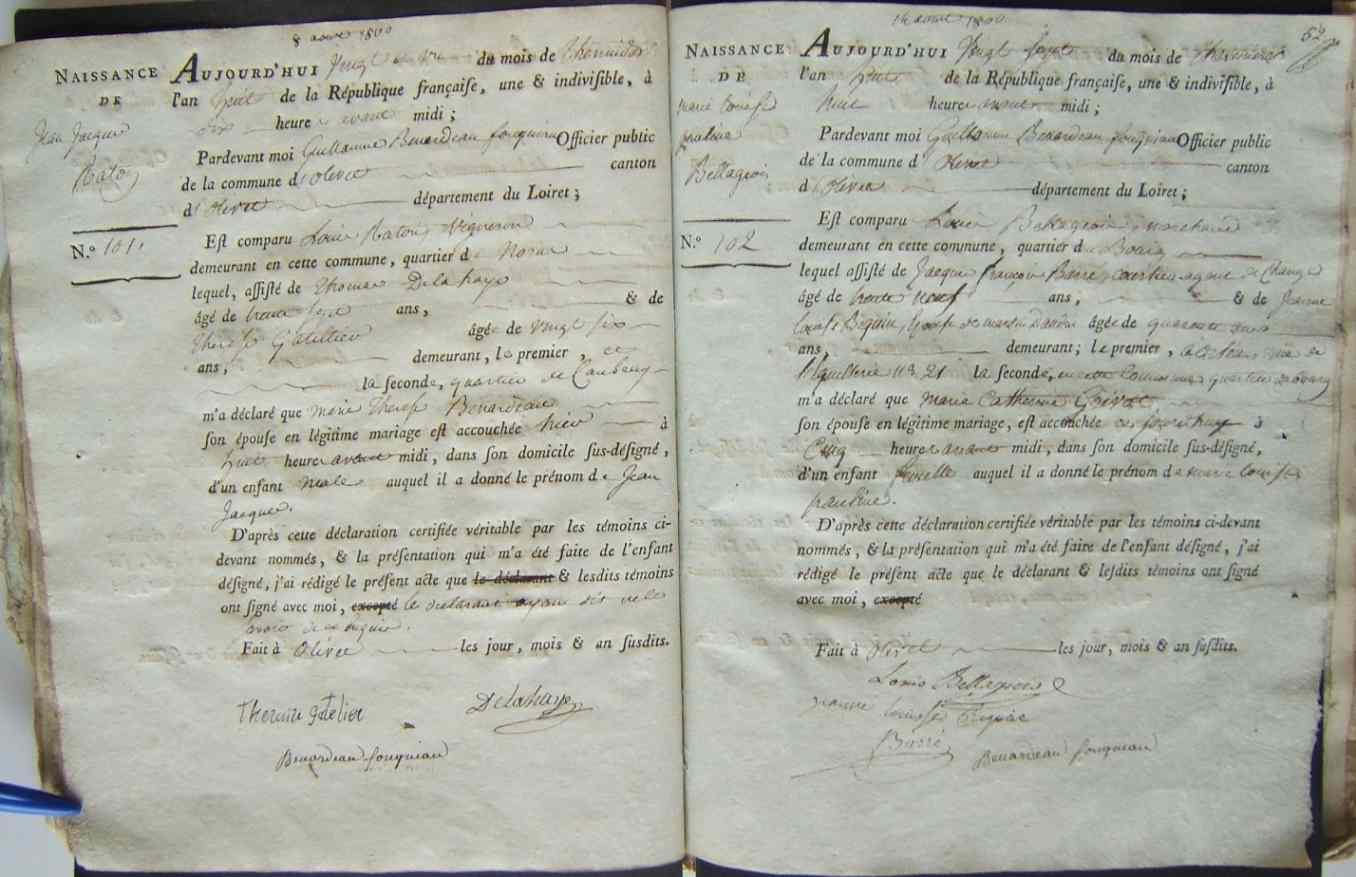 8 aout 1800
NAISSANCE
DE
Jean Jacques
Raton
N.º 101.
AUJOURD'HUI Vingt du mois de thermidor
l'an huit de la République françaiſe, une & indiviſible, à
dix heures avant midi ;
Pardevant moi Guillaume Benardeau fouquiau Officier public
de la commune d'Olivet canton
d'Olivet département du Loiret ;
Eſt comparu Louis Raton, Vigneron
demeurant en cette commune, quartier d
lequel, aſſiſté de Thomas Delahaye
âgé de trente ans, & de
Therese Gatellier âgée de vingt six
ans, demeurant, le premier, ce
la seconde, quartier de Caubray
m'a déclaré que Marie Therese Benardeau
ſon épouse en légitime mariage eſt accouchée hier à
huit heures avant midi, dans ſon domicile ſus-déſigné,
d'un enfant male auquel il a donné le prénom de Jean
Jacques.
D'après cette déclaration certifiée véritable par les témoins ci-
devant nommés, & la préſentation qui m'a été faite de l'enfant
déſigné, j'ai rédigé le préſent acte que le déclarant & leſdits témoins
ont ſigné avec moi, excepté le declarant ayant dit ne le
savoir de ce requis.
Fait à Olivet les jour, mois & an susdits.
Delahaye
Benardeau fouquiau
16 aout 1800
52
NAISSANCE
DE
Marie Louise
pauline
Bellageois
N.º 102
AUJOURD'HUI Vingt sept du mois de thermidor
l'an huit de la République françaiſe, une & indiviſible, à
huit heures avant midi ;
Pardevant moi Guillaume Benardeau fouquiau Officier public
de la commune d'Olivet canton
d'Olivet département du Loiret ;
Eſt comparu Louis Bellageois, marchand
demeurant en cette commune, quartier du Bourg
lequel aſſiſté de Jacques françois Barré, courtier agent de Change
âgé de trente neuf ans, & de Jeanne
Louise épouse de martin âgée de quarante
ans, demeurant ; le premier, a Orléans rue de
l'Eguillerie nº 21 la seconde, en cette Commune quartier du bourg
m'a déclaré que Marie Catherine
ſon épouse en légitime mariage, eſt accouchée ce jourd'huy à
Cinq heures avant midi, dans ſon domicile ſus-déſigné,
d'un enfant femelle auquel il a donné le prénom de Marie Louise
pauline.
D'après cette déclaration certifiée véritable par les témoins ci-devant
nommés, & la préſentation qui m'a été faite de l'enfant déſigné, j'ai
rédigé le préſent acte que le déclarant & leſdits témoins ont ſigné
avec moi, excepté
Fait à Olivet les jour, mois & an ſuſdits.
Louis Bellageois
Jeanne Louise
Barré
Benardeau fouquiau